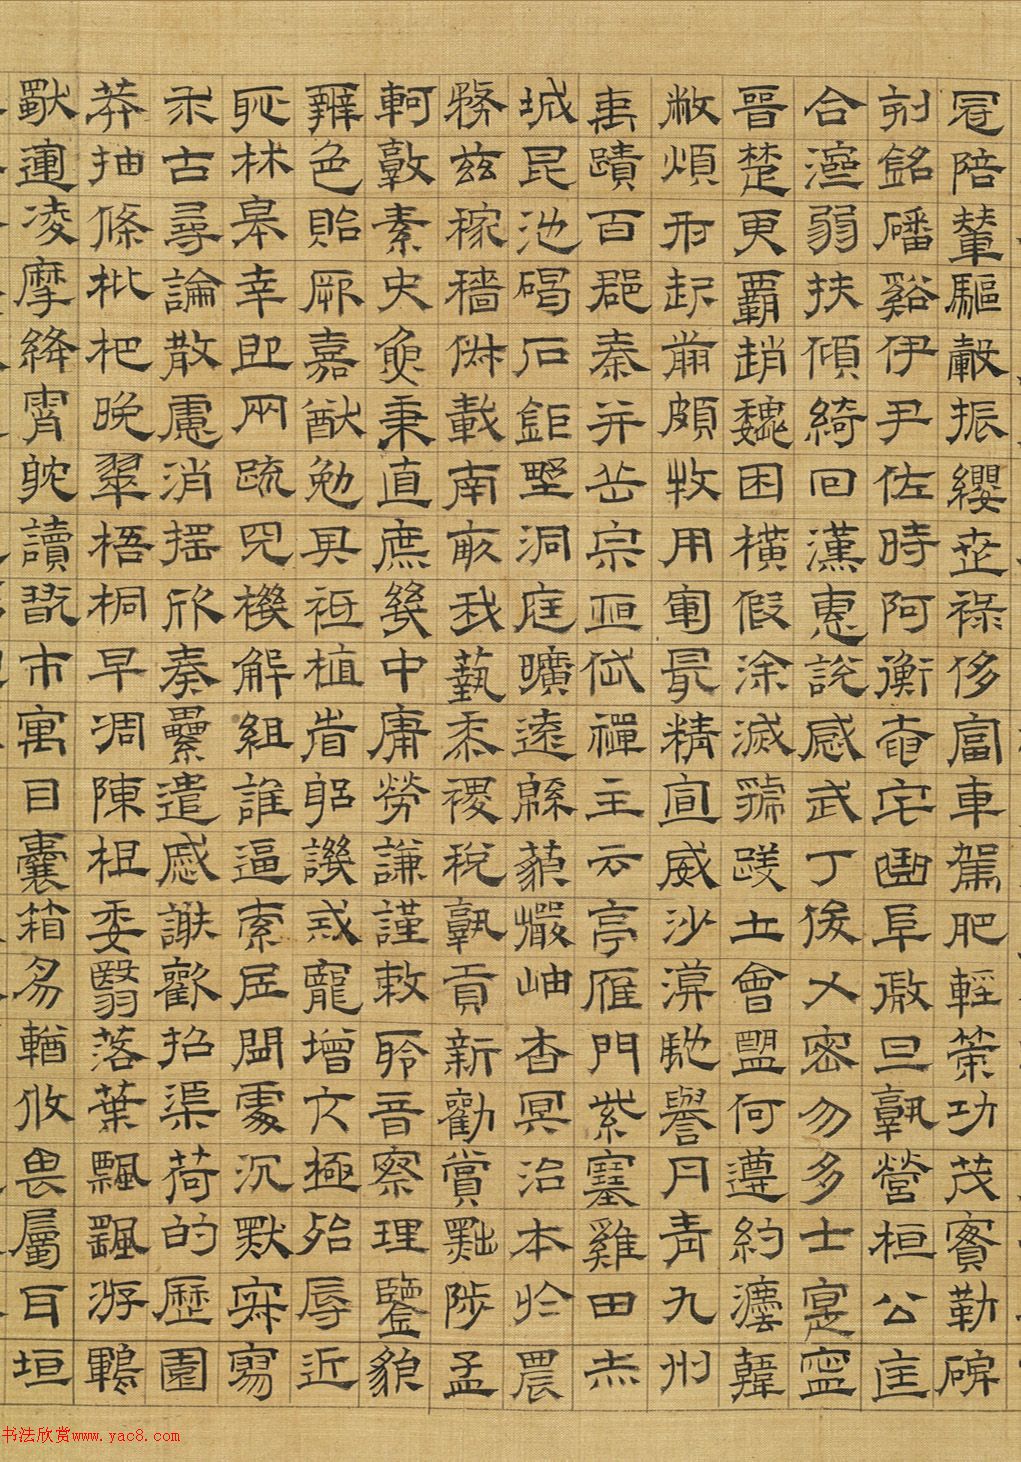 冠陪輦驅轂振纓世祿侈富車駕肥輕策功茂實勒碑
刻銘磻谿伊尹佐時阿衡奄宅曲阜微旦孰營桓公匡
合濟弱扶傾綺回漢惠說感武丁俊乂密勿多士寔寧
晉楚更霸趙魏困橫假涂滅虢踐土會盟何遵約灋韓
敝煩刑起翦頗牧用軍最精宣威沙漠馳譽丹青九州
禹蹟百郡秦并岳宗恒岱禪主云亭雁門紫塞雞田赤
城昆池碣石鉅野洞庭曠遠緜藐巖岫杳冥治本於農
務茲稼穡俶載南畝我藝黍稷稅孰貢新勸賞黜陟孟
軻敦素史魚秉直庶幾中庸勞謙謹敕聆音察理鑒貌
辨色貽厥嘉猷勉其祗植省躬譏戒寵增亢極殆辱近
恥林皋幸即兩疏見機解組誰逼索居閒處沉默寂寥
求古尋論散慮消搖欣奏累遣慼謝歡招渠荷的歷園
莽抽條枇杷晚翠梧桐早凋陳根委翳落葉飄颻游鵾
獨運凌摩絳霄耽讀翫市寓目囊箱易輶攸畏屬耳垣
书法欣赏www.yac8.com